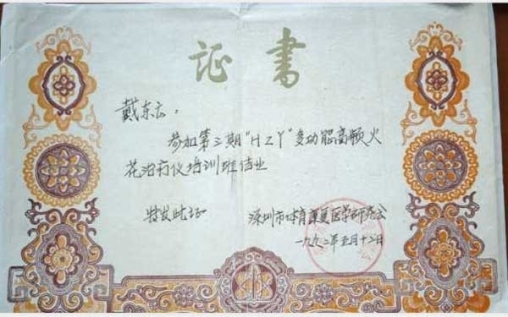 证书
戴东云，
参加第三期"HZY"多功能高频火
花治疗仪培训班结业
特发此证
深圳市体育康复医学研究会
一九九二年五月十二日